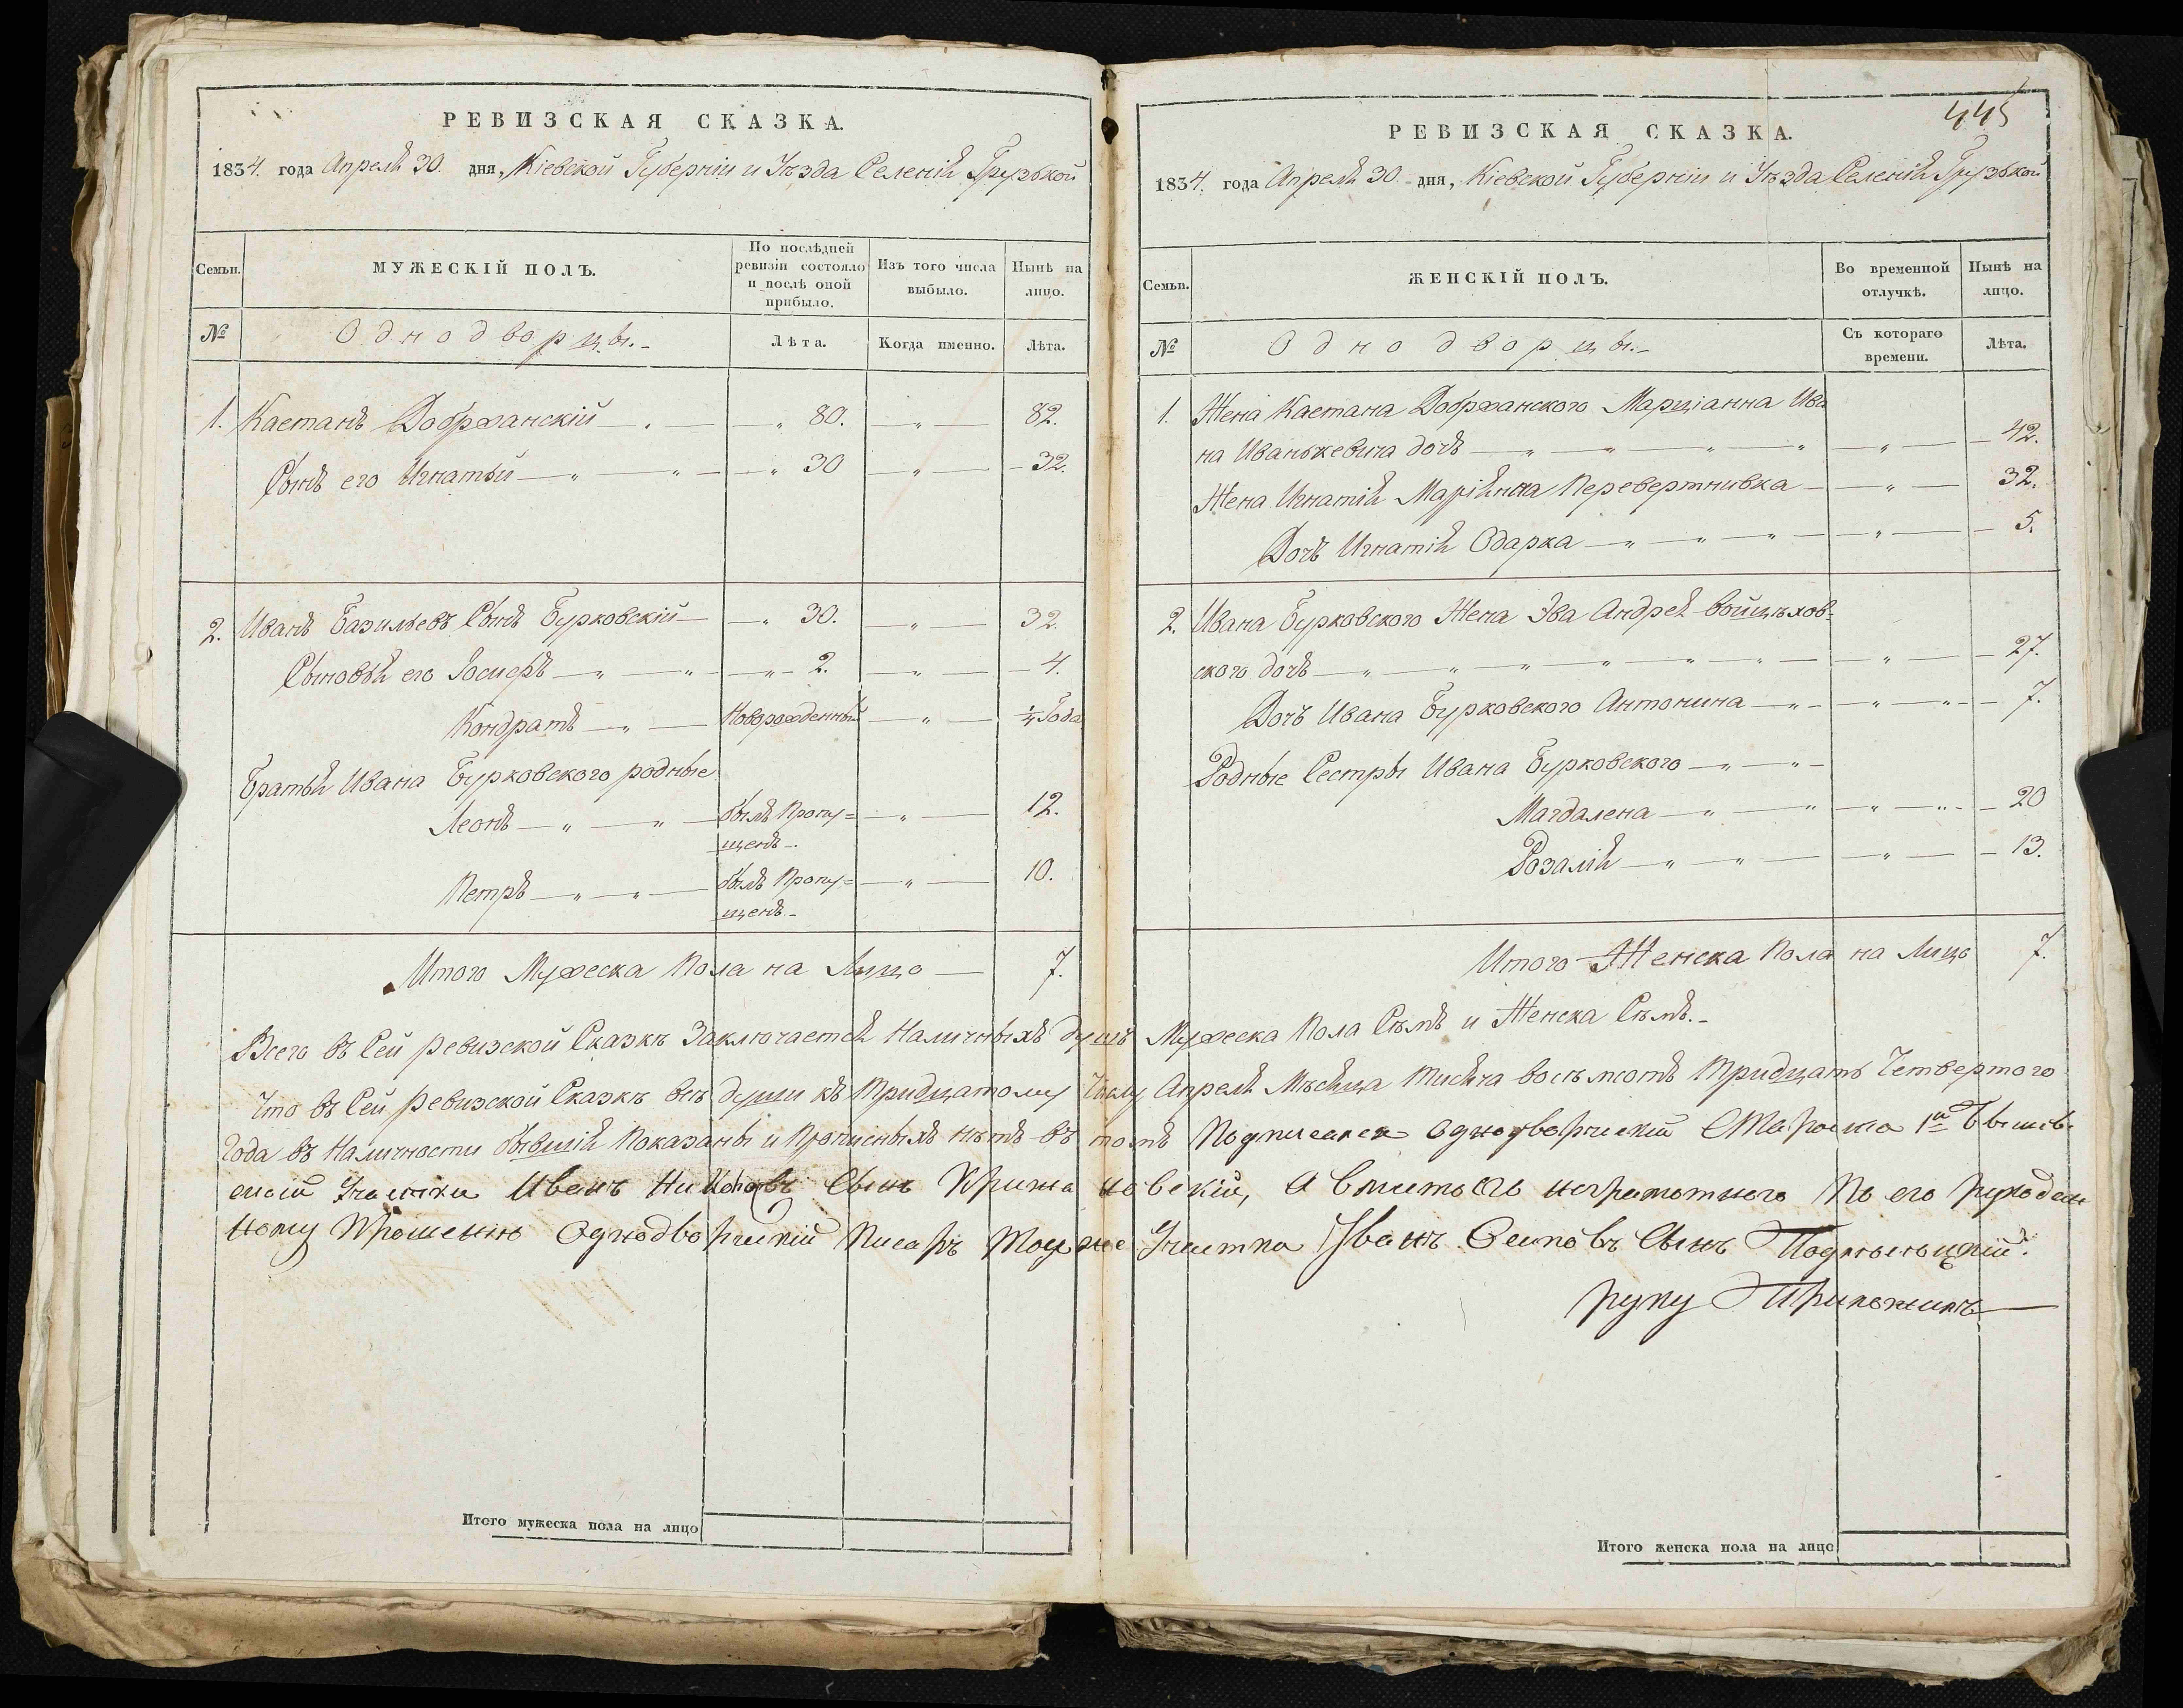 РЕВИЗСКАЯ СКАЗКА.
1834. года Апреля 30. дня, Кіевской Губерніи и Уѣзда Селенія Грузькой
Семьи.
МУЖЕСКІЙ ПОЛЪ.
По послѣдней ревизіи состояло и послѣ оной прибыло.
Изъ того числа выбыло.
Нынѣ на лицо.
№
Однодворцы.-
Лѣта.
Когда именно.
Лѣта.
1. Каетанъ Добржанскій — „ — „ 80. — „ — 82.
Сынъ его Игнатый — „ — „ — „ 30 — „ — 32.
2. Иванъ Базильевъ Сынъ Бурковскій — „ 30. — „ — 32.
Сыновья его Іосифъ — „ — „ — „ — 2. — „ — 4.
Кондратъ — „ — Новорожденный — „ — 1/4 Года
Братья Ивана Бурковского родные
Леонъ — „ — „ — былъ Пропу= — „ — 12.
щенъ-.
Петръ — „ — „ — былъ Пропу= — „ — 10.
щенъ.-
Итого Мужеска Пола на Лицо — 7.
445
РЕВИЗСКАЯ СКАЗКА.
1834. года Апреля 30. дня, Кіевской Губерніи и Уѣзда Селенія Грузкой
Семьи.
ЖЕНСКІЙ ПОЛЪ.
Во временной отлучкѣ.
Нынѣ на лицо.
№
Однодворцы.-
Съ котораго времени.
Лѣта.
1. Жена Каетана Добржанского Марціанна Ива
на Иванькевича дочъ — „ — „ — „ — „ — „ — 42.
Жена Игнатія Маріянна Перевертнивка — „ — 32.
Дочъ Игнатія Одарка — „ — „ — „ — „ — 5.
2. Ивана Бурковского Жена Эва Андрея Войцѣхов-
ского дочъ — „ — „ — „ — „ — „ — „ — „ — 27.
Дочъ Ивана Бурковского Антонина — „ — „ — „ — 7.
Родные Сестры Ивана Бурковского — „ — „ —
Магдалена — „ — „ — „ — „ — 20
Розалія — „ — „ — „ — 13.
Итого Женска Пола на Лицо 7.
Всего въ Сей ревизской Сказкѣ Заключается Наличныхъ душъ Мужеска Пола Сѣмъ и Женска Сѣмъ.-
Что въ Сей ревизской Сказкѣ всѣ души къ Тридцатому Числу Апреля Мѣсяца Тисяча восѣмсотъ Тридцать Четвертого
Года въ Наличности бывшія Показаны и Прописныхъ нѣтъ въ томъ Подписался однодворческій Староста 1й Бышев-
Участки Иванъ Сынъ Крижановскій, а вместо его неграмотнего По его рукодан
ному Прошению Однодворческій Писаръ Тоей же Участка Иванъ Осиповъ Сынъ
руку Приложилъ —
Итого мужеска пола на лицо
Итого женска пола на лицо